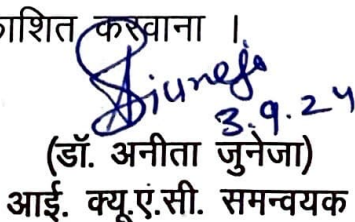 ाशित करवाना ।
Sjuneja
3.9.24
(डॉ. अनीता जुनेजा)
आई. क्यू.ए.सी. समन्वयक